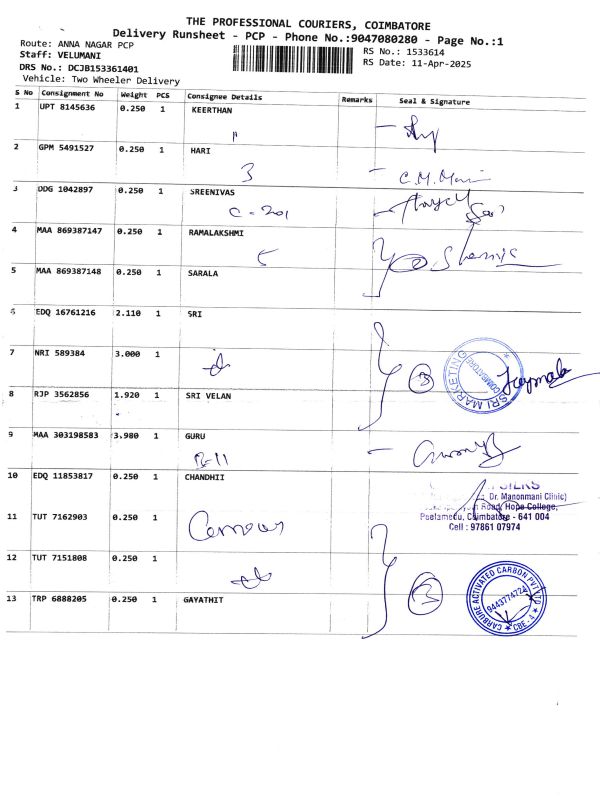 THE PROFESSIONAL COURIERS, COIMBATORE
Delivery Runsheet - PCP - Phone No.:9047080280 - Page No.:1
Route: ANNA NAGAR PCP
Staff: VELUMANI
DRS No.: DCJB153361401
Vehicle: Two Wheeler Delivery
RS No.: 1533614
RS Date: 11-Apr-2025
S No Consignment No Weight PCS Consignee Details Remarks Seal & Signature
1 UPT 8145636 0.250 1 KEERTHAN
2 GPM 5491527 0.250 1 HARI
3
3 DDG 1042897 0.250 1 SREENIVAS
C-201
4 MAA 869387147 0.250 1 RAMALAKSHMI
5 MAA 869387148 0.250 1 SARALA
6 EDQ 16761216 2.110 1 SRI
7 NRI 589384 3.000 1
3
SRI MARKETING
COIMBATORE
8 RJP 3562856 1.920 1 SRI VELAN
9 MAA 303198583 3.980 1 GURU
10 EDQ 11853817 0.250 1 CHANDHII
SILKS
Dr. Manonmani Clinic)
Road, Hope College,
Peelamedu, Coimbatore - 641 004
Cell : 97861 07974
11 TUT 7162903 0.250 1
12 TUT 7151808 0.250 1
3
CARBURE ACTIVATED CARBON PVT LTD
9443774724
CBE - 4
13 TRP 6888205 0.250 1 GAYATHIT